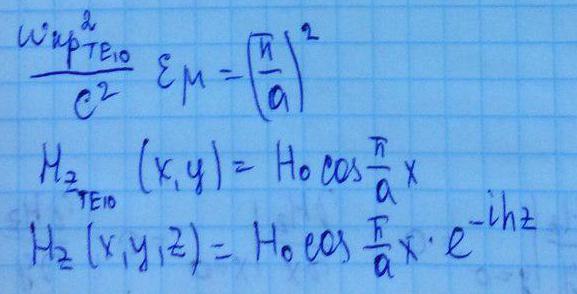 ωкр²_TE10 / c² εμ = (π/a)²
H_z TE10 (x,y) = H₀ cos π/a x
H_z (x,y,z) = H₀ cos π/a x · e^(-ihz)